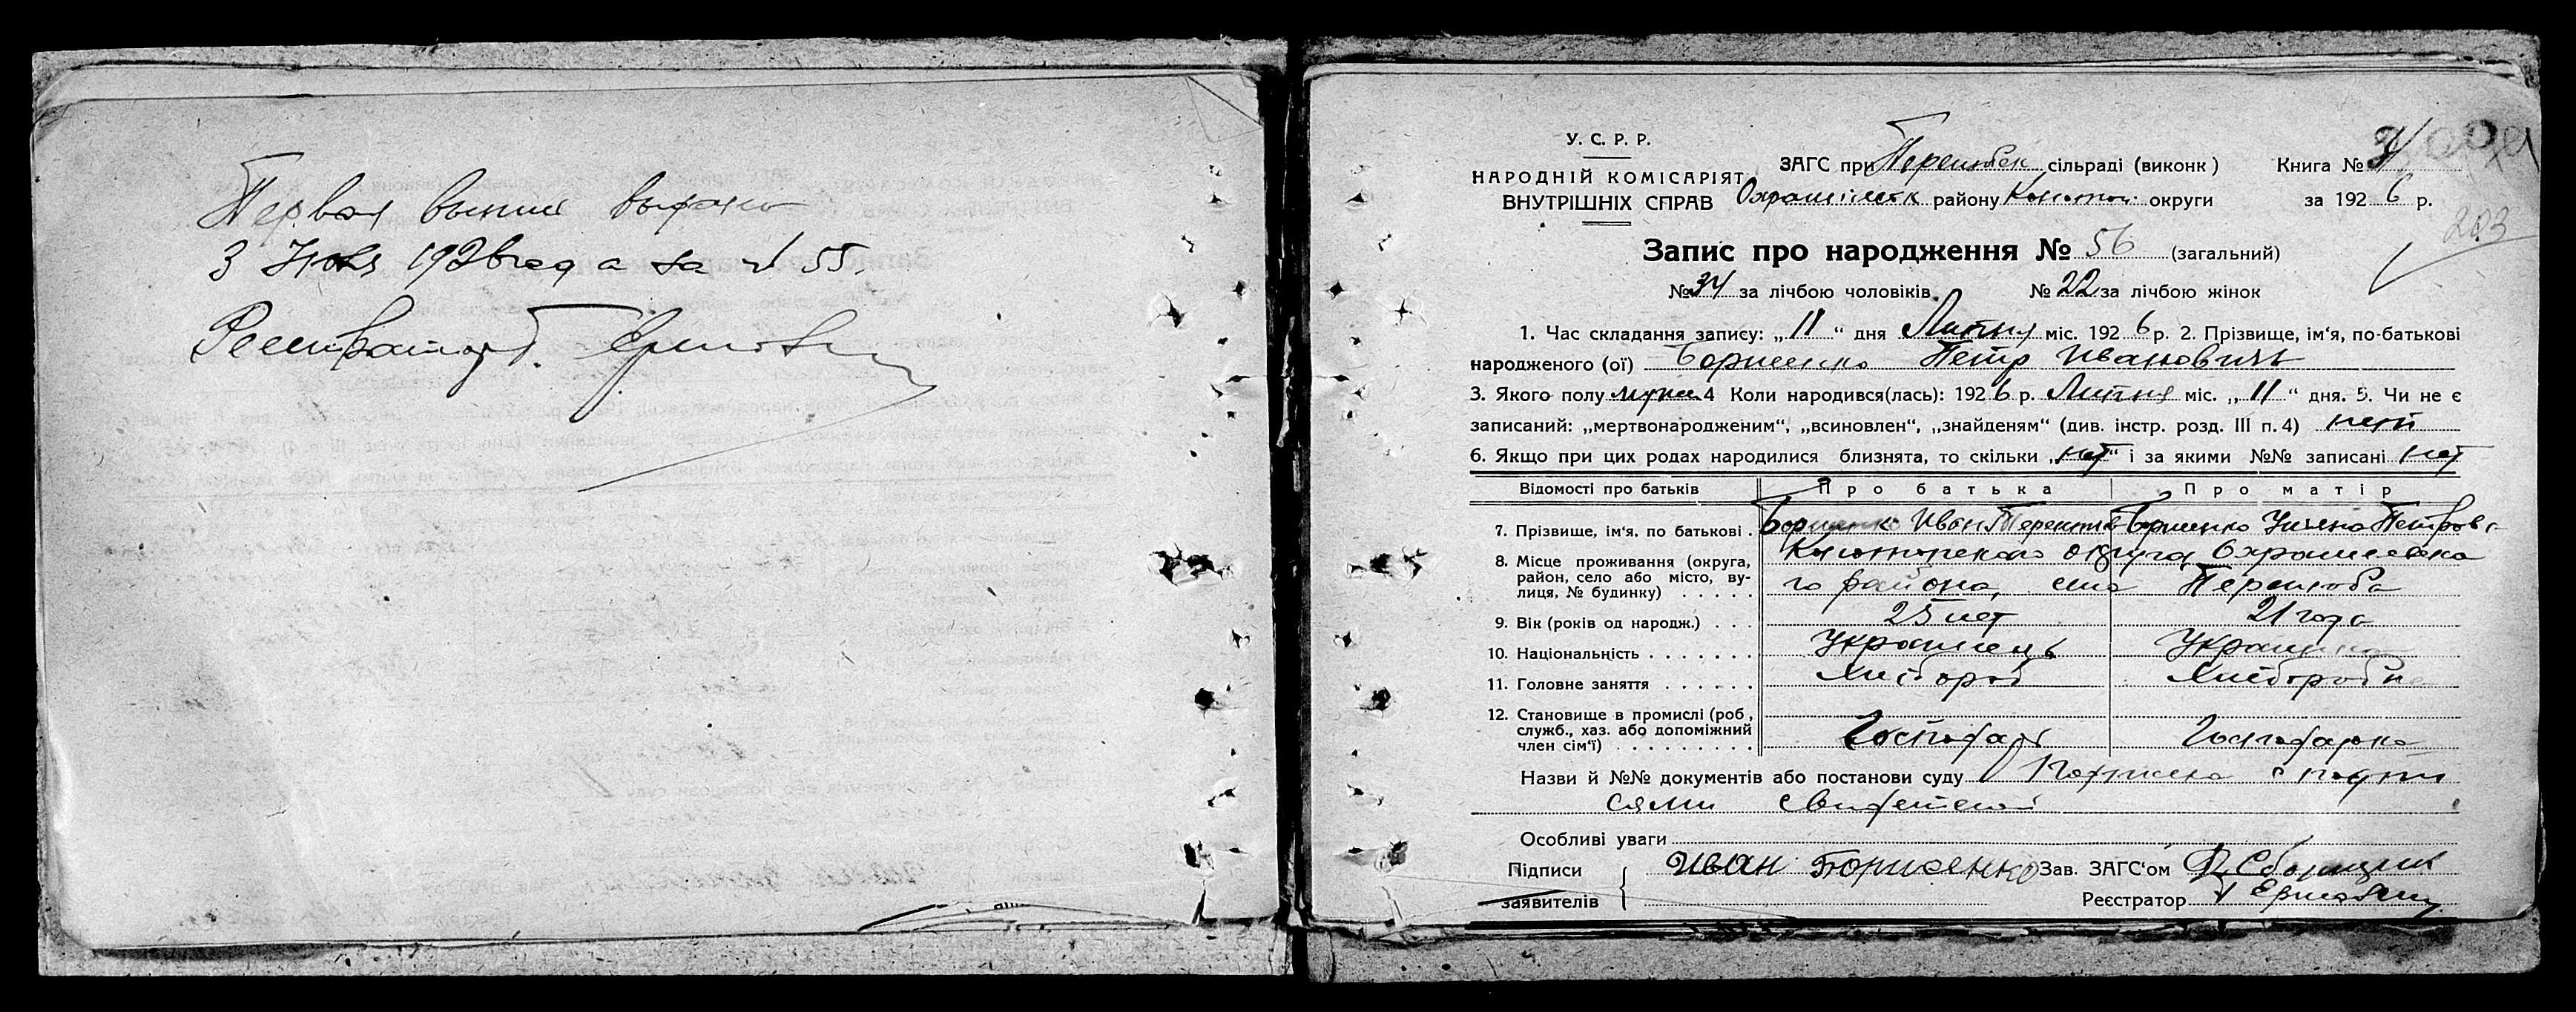 Первая выпись выдана
3 Июля 1926 года за № 55.
Реєстратор
У. С. Р. Р.
НАРОДНІЙ КОМІСАРІЯТ
ВНУТРІШНІХ СПРАВ
ЗАГС при сільраді (виконк)
району Конотоп. округи
Книга №
за 1926 р.
203
Запис про народження № 56 (загальний)
№ 34 за лічбою чоловіків. № 22 за лічбою жінок
1. Час складання запису: „ 11 “ дня Липня міс. 1926 р. 2. Прізвище, ім'я, по-батькові
народженого (ої) Борисенко Петр Иванович
3. Якого полу муж. 4 Коли народився(лась): 1926 р. Липня міс. „ 11 “ дня. 5. Чи не є
записаний: „мертвонародженим“, „всиновлен“, „знайденям“ (див. інстр. розд. III п. 4) нет
6. Якщо при цих родах народилися близнята, то скільки „нет“ і за якими №№ записані нет
Відомості про батьків Про батька Про матір
7. Прізвище, ім'я, по батькові . Борисенко Иван Борисенко Петров
8. Місце проживання (округа,
район, село або місто, ву-
лиця, № будинку) . . . . .
Конотопского округа,
го района, села
9. Вік (років од народж.) . . . 25 лет 21 года
10. Національність . . . . . . . Украинець Украинка
11. Головне заняття . . . . . . Хлібороб Хлібороб
12. Становище в промислі (роб,
служб., хаз. або допоміжний
член сім'ї) . . . . . . . . . Господарь Господарка
Назви й №№ документів або постанови суду
Особливі уваги
Підписи
заявителів
Иван Борисенко Зав. ЗАГС'ом
Реєстратор